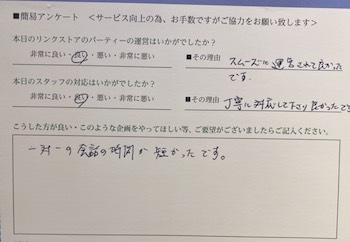 ■簡易アンケート <サービス向上の為、お手数ですがご協力をお願い致します>
本日のリンクストアのパーティーの運営はいかがでしたか?
非常に良い・良い・悪い・非常に悪い ■その理由 スムーズに運営されて良かった
です。
本日のスタッフの対応はいかがでしたか?
非常に良い・良い・悪い・非常に悪い ■その理由 丁寧に対応して下さり良かったです
こうした方が良い・このような企画をやってほしい等、ご要望がございましたらご記入ください。
一対一の会話の時間が短かったです。